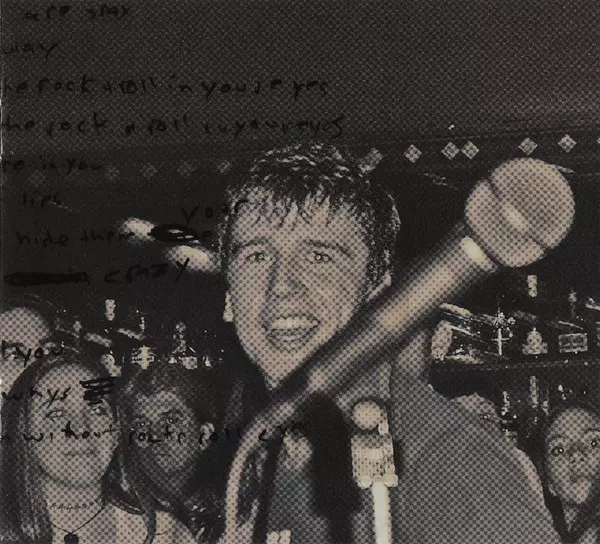 are
way
he rock & roll in your eyes
the rock & roll in your eyes
re in you
lies
your
hide them
crazy
t you
ways
without rock n roll eyes